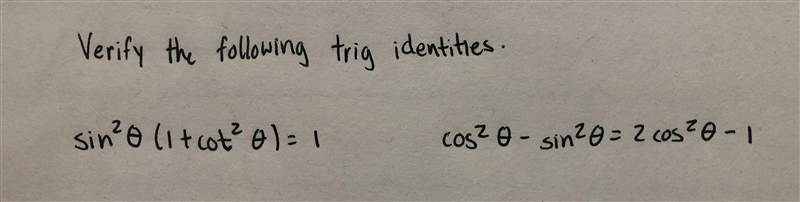 Verify the following trig identities.
sin²θ (1+cot²θ) = 1
cos²θ - sin²θ = 2 cos²θ - 1